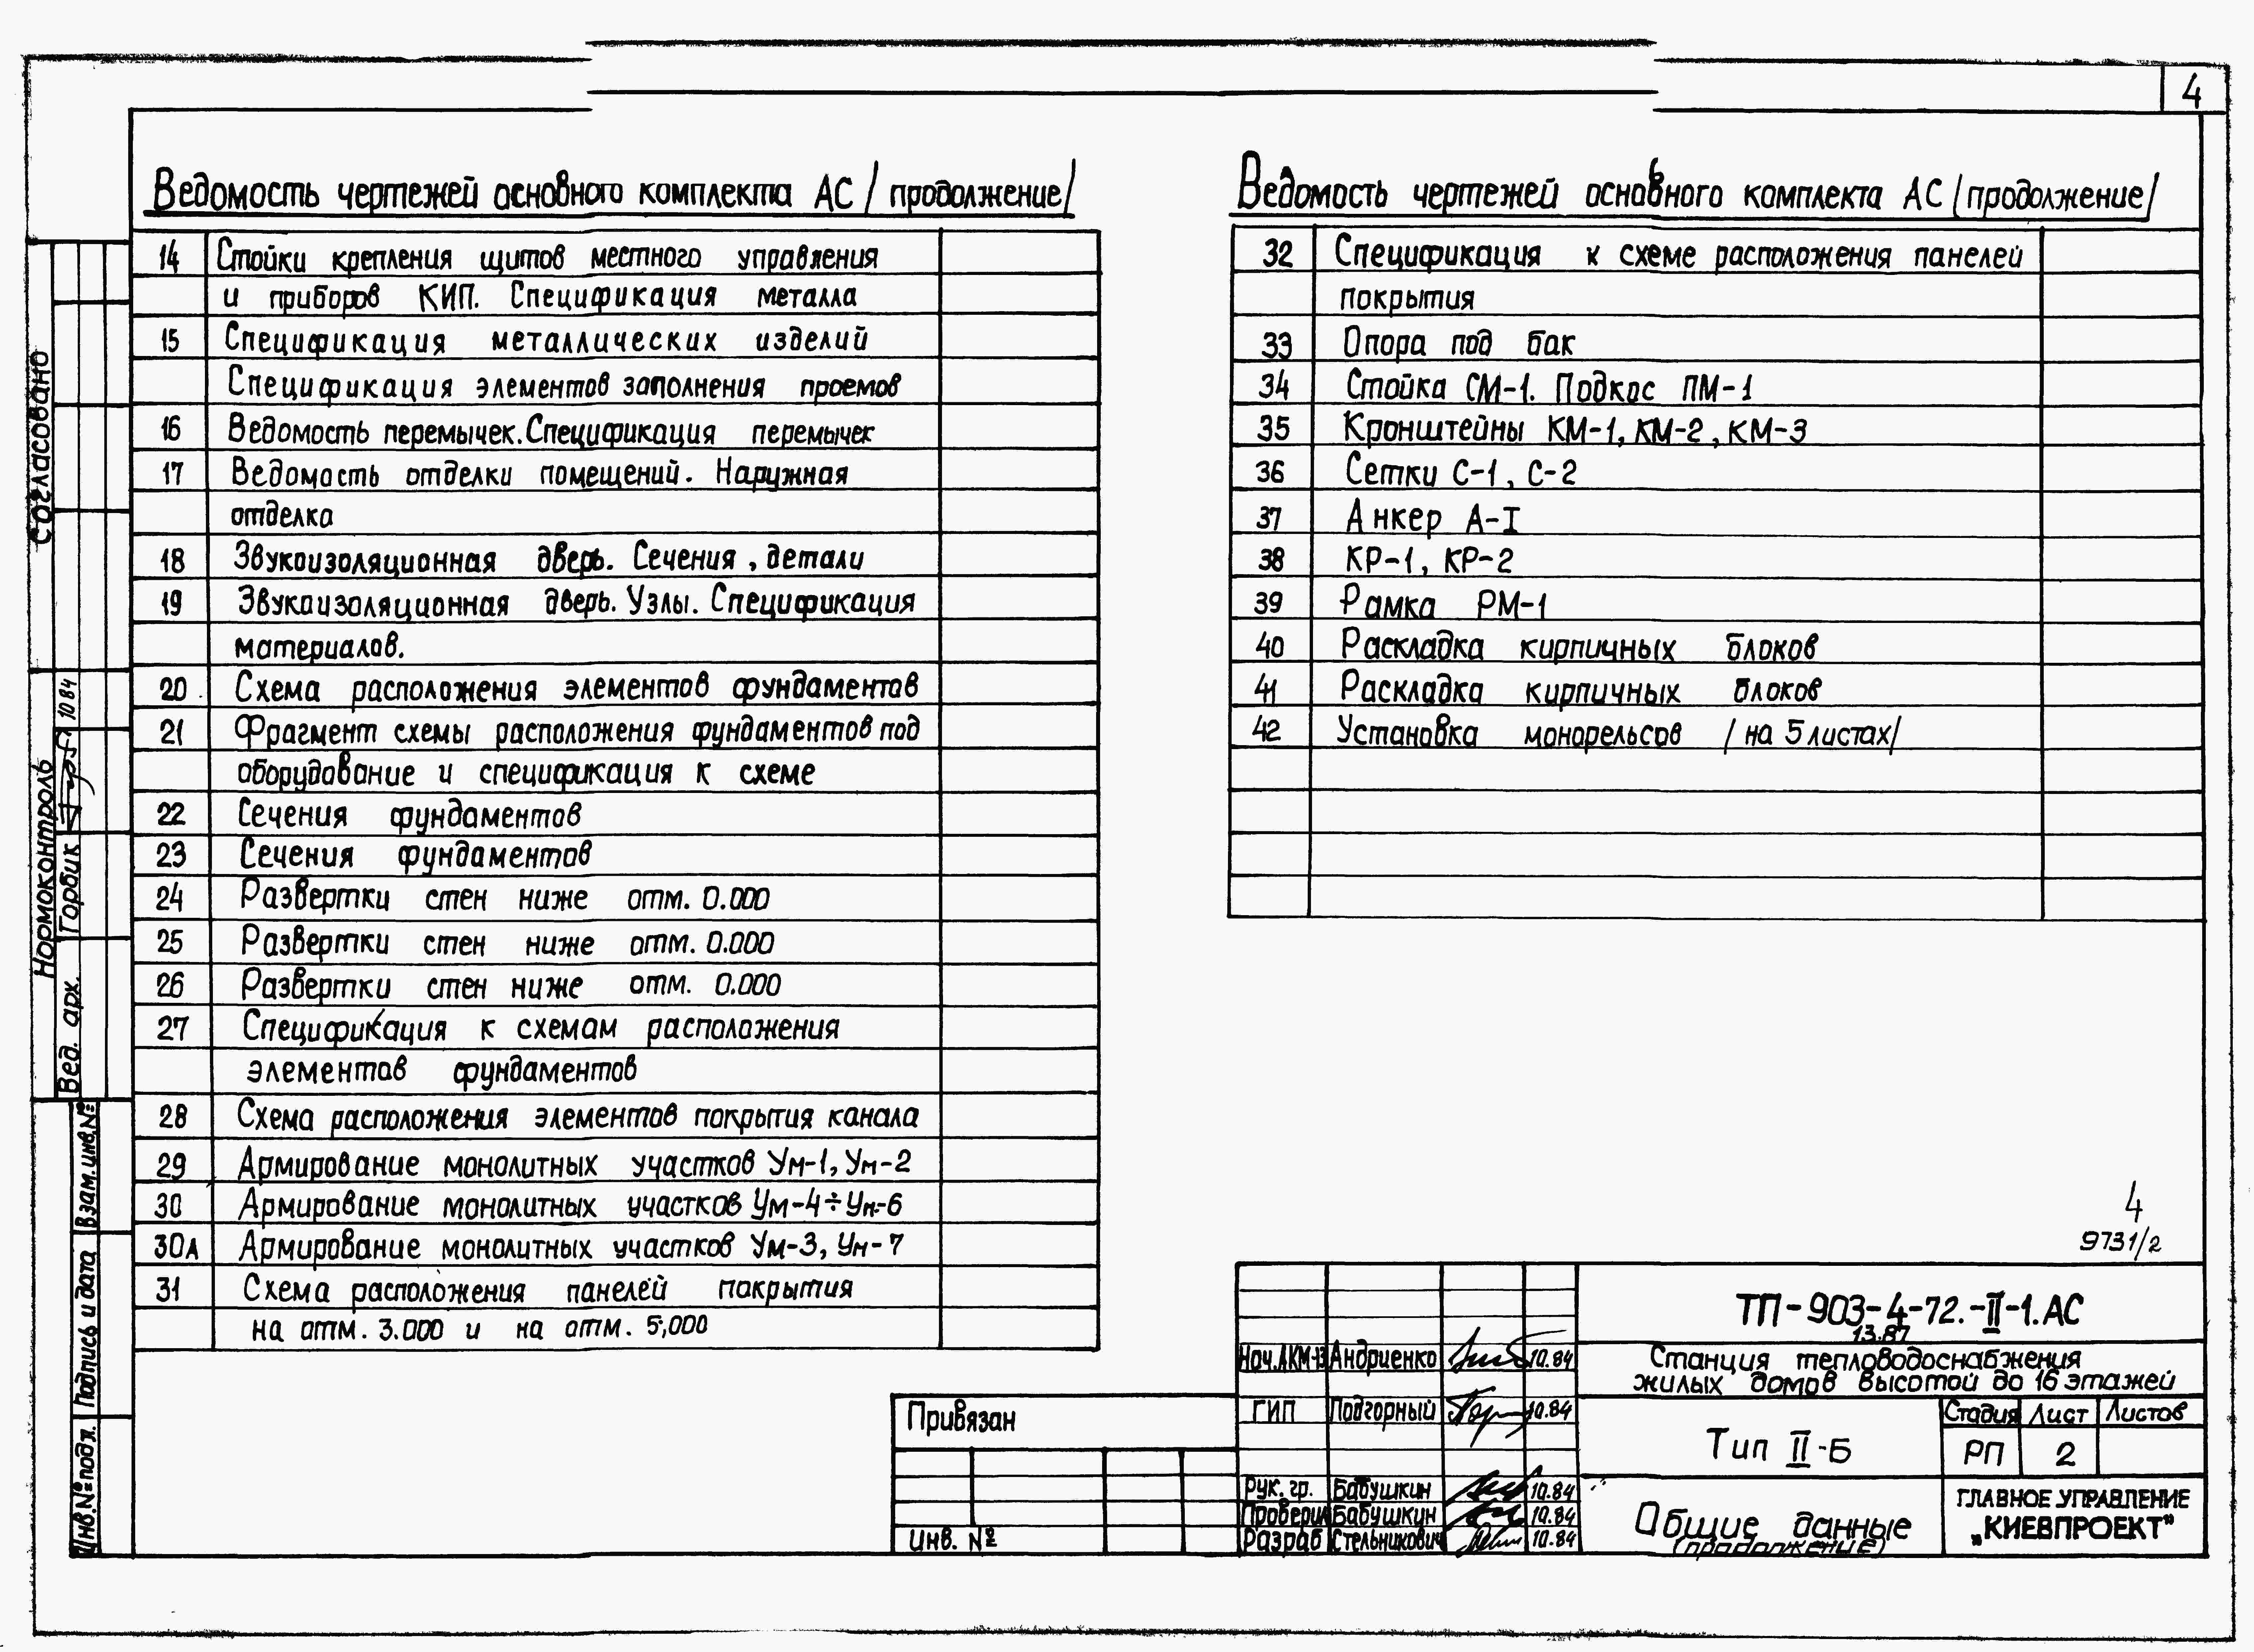 4
Ведомость чертежей основного комплекта АС /продолжение/
14 Стойки крепления щитов местного управления
и приборов КИП. Спецификация металла
15 Спецификация металлических изделий
Спецификация элементов заполнения проемов
16 Ведомость перемычек. Спецификация перемычек
17 Ведомость отделки помещений. Наружная
отделка
18 Звукоизоляционная дверь. Сечения, детали
19 Звукоизоляционная дверь. Узлы. Спецификация
материалов.
20 Схема расположения элементов фундаментов
21 Фрагмент схемы расположения фундаментов под
оборудование и спецификация к схеме
22 Сечения фундаментов
23 Сечения фундаментов
24 Развертки стен ниже отм. 0.000
25 Развертки стен ниже отм. 0.000
26 Развертки стен ниже отм. 0.000
27 Спецификация к схемам расположения
элементов фундаментов
28 Схема расположения элементов покрытия канала
29 Армирование монолитных участков Ум-1, Ум-2
30 Армирование монолитных участков Ум-4÷Ум-6
30А Армирование монолитных участков Ум-3, Ум-7
31 Схема расположения панелей покрытия
на отм. 3.000 и на отм. 5,000
Ведомость чертежей основного комплекта АС /продолжение/
32 Спецификация к схеме расположения панелей
покрытия
33 Опора под бак
34 Стойка СМ-1. Подкос ПМ-1
35 Кронштейны КМ-1, КМ-2, КМ-3
36 Сетки С-1, С-2
37 Анкер А-I
38 КР-1, КР-2
39 Рамка РМ-1
40 Раскладка кирпичных блоков
41 Раскладка кирпичных блоков
42 Установка монорельсов /на 5 листах/
Согласовано
Нормоконтроль
Вед. арх. Горбик 10 84
Взам.инв.№
Подпись и дата
Инв.№ подл.
4
9731/2
Привязан
Инв. №
Нач.АКМ-13 Андриенко 10.84
ГИП Подгорный 10.84
Рук. гр. Бабушкин 10.84
Проверил Бабушкин 10.84
Разраб Стельникович 10.84
ТП-903-4-72.-II-1.АС
13.87
Станция тепловодоснабжения
жилых домов высотой до 16 этажей
Тип II-Б
Стадия Лист Листов
РП 2
Общие данные
(продолжение)
ГЛАВНОЕ УПРАВЛЕНИЕ
„КИЕВПРОЕКТ"